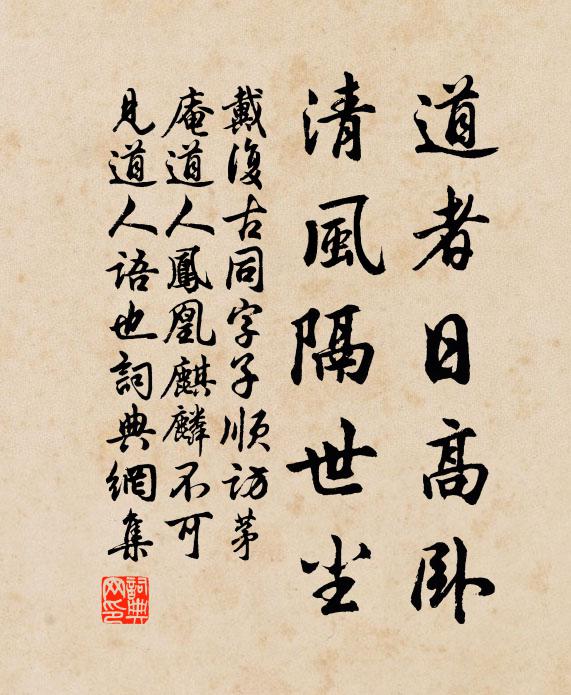 道者日高卧
清風隔世坐
戴復古同字子順訪茅
庵道人鳳凰麒麟不可
見道人語也詞典網集
詞典
网印